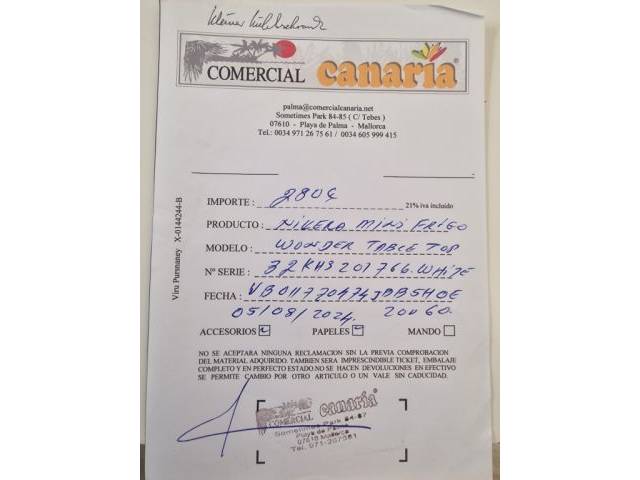 COMERCIAL canaria
palma@comercialcanaria.net
Sometimes Park 84-85 ( C/ Tebes )
07610 - Playa de Palma - Mallorca
Tel.: 0034 971 26 75 61 / 0034 605 999 415
IMPORTE : 280€ 21% iva incluido
PRODUCTO : NIVERA MINI FRIGO
MODELO : WONDER TABLE TOP
Nº SERIE : 32KHS201766.WHITE
FECHA : VB011770474JBB5H0E
05/08/2024. 20:60.
ACCESORIOS PAPELES MANDO
NO SE ACEPTARA NINGUNA RECLAMACION SIN LA PREVIA COMPROBACION
DEL MATERIAL ADQUIRIDO. TAMBIEN SERA IMPRESCINDIBLE TICKET, EMBALAJE
COMPLETO Y EN PERFECTO ESTADO.NO SE HACEN DEVOLUCIONES EN EFECTIVO
SE PERMITE CAMBIO POR OTRO ARTICULO O UN VALE SIN CADUCIDAD.
COMERCIAL canaria
Sometimes Park 84-87
Playa de Palma
07610 Mallorca
Tel. 971-267561
Viru Pursnaney X-0144244-B